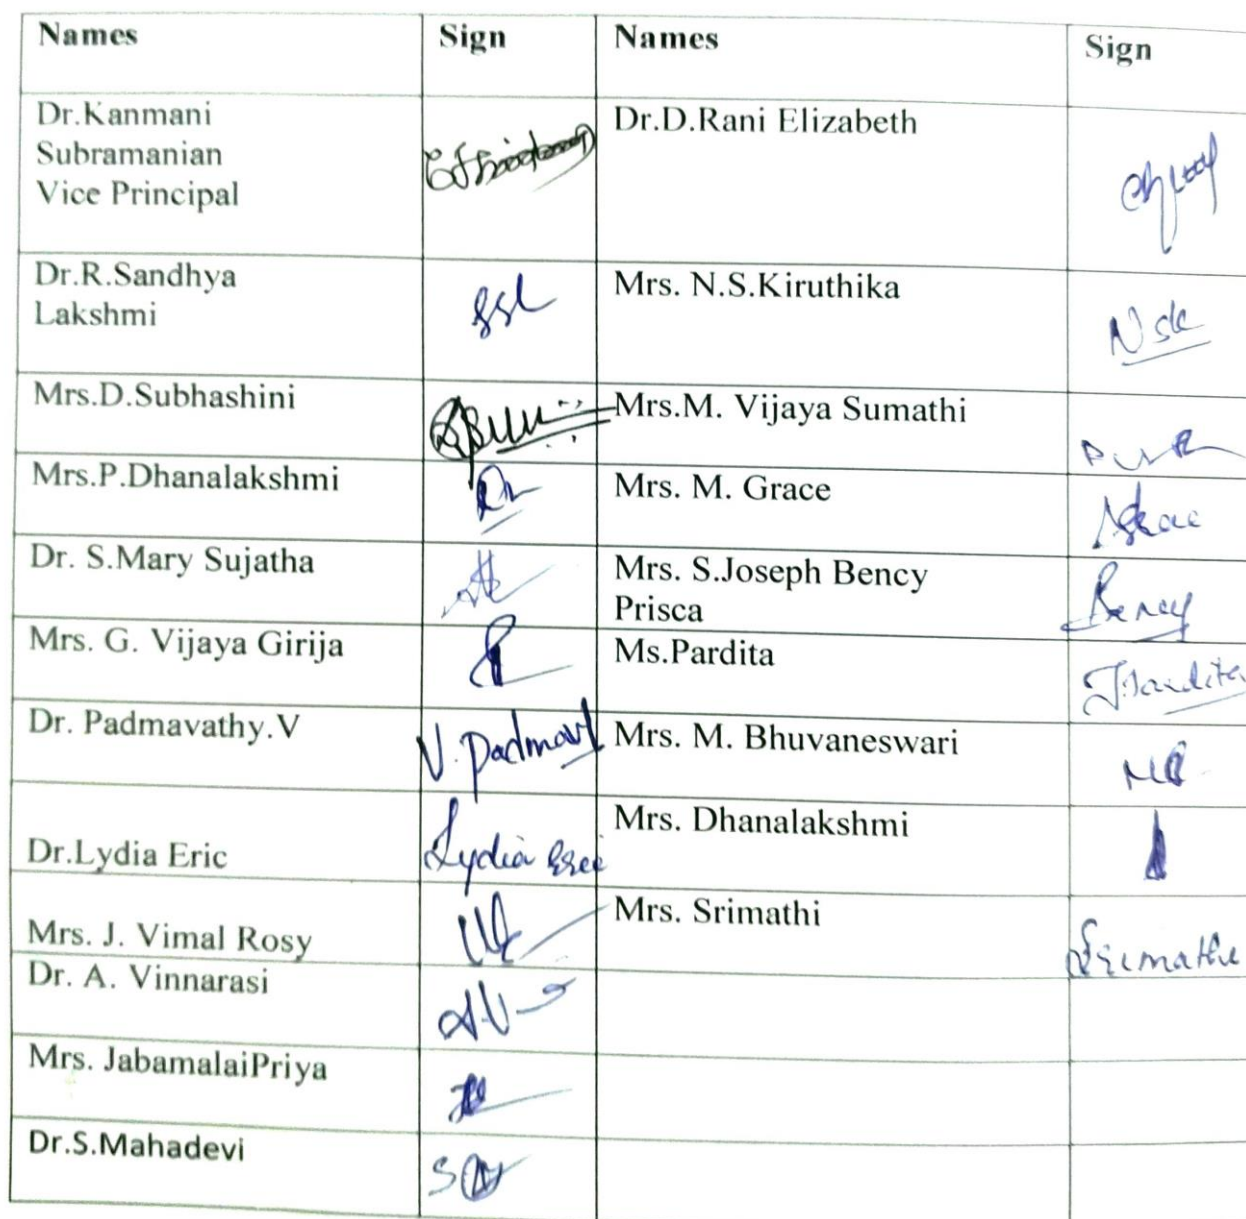 Names Sign Names Sign
Dr.Kanmani
Subramanian
Vice Principal
Dr.D.Rani Elizabeth
Dr.R.Sandhya
Lakshmi
Mrs. N.S.Kiruthika
Nsk
Mrs.D.Subhashini
Mrs.M. Vijaya Sumathi
Mrs.P.Dhanalakshmi
Mrs. M. Grace
Dr. S.Mary Sujatha
Mrs. S.Joseph Bency
Prisca
Bency
Mrs. G. Vijaya Girija
Ms.Pardita
Dr. Padmavathy.V
V. Padmavt
Mrs. M. Bhuvaneswari
Dr.Lydia Eric
Lydia Eric
Mrs. Dhanalakshmi
Mrs. J. Vimal Rosy
Mrs. Srimathi
Srimathi
Dr. A. Vinnarasi
Mrs. JabamalaiPriya
Dr.S.Mahadevi